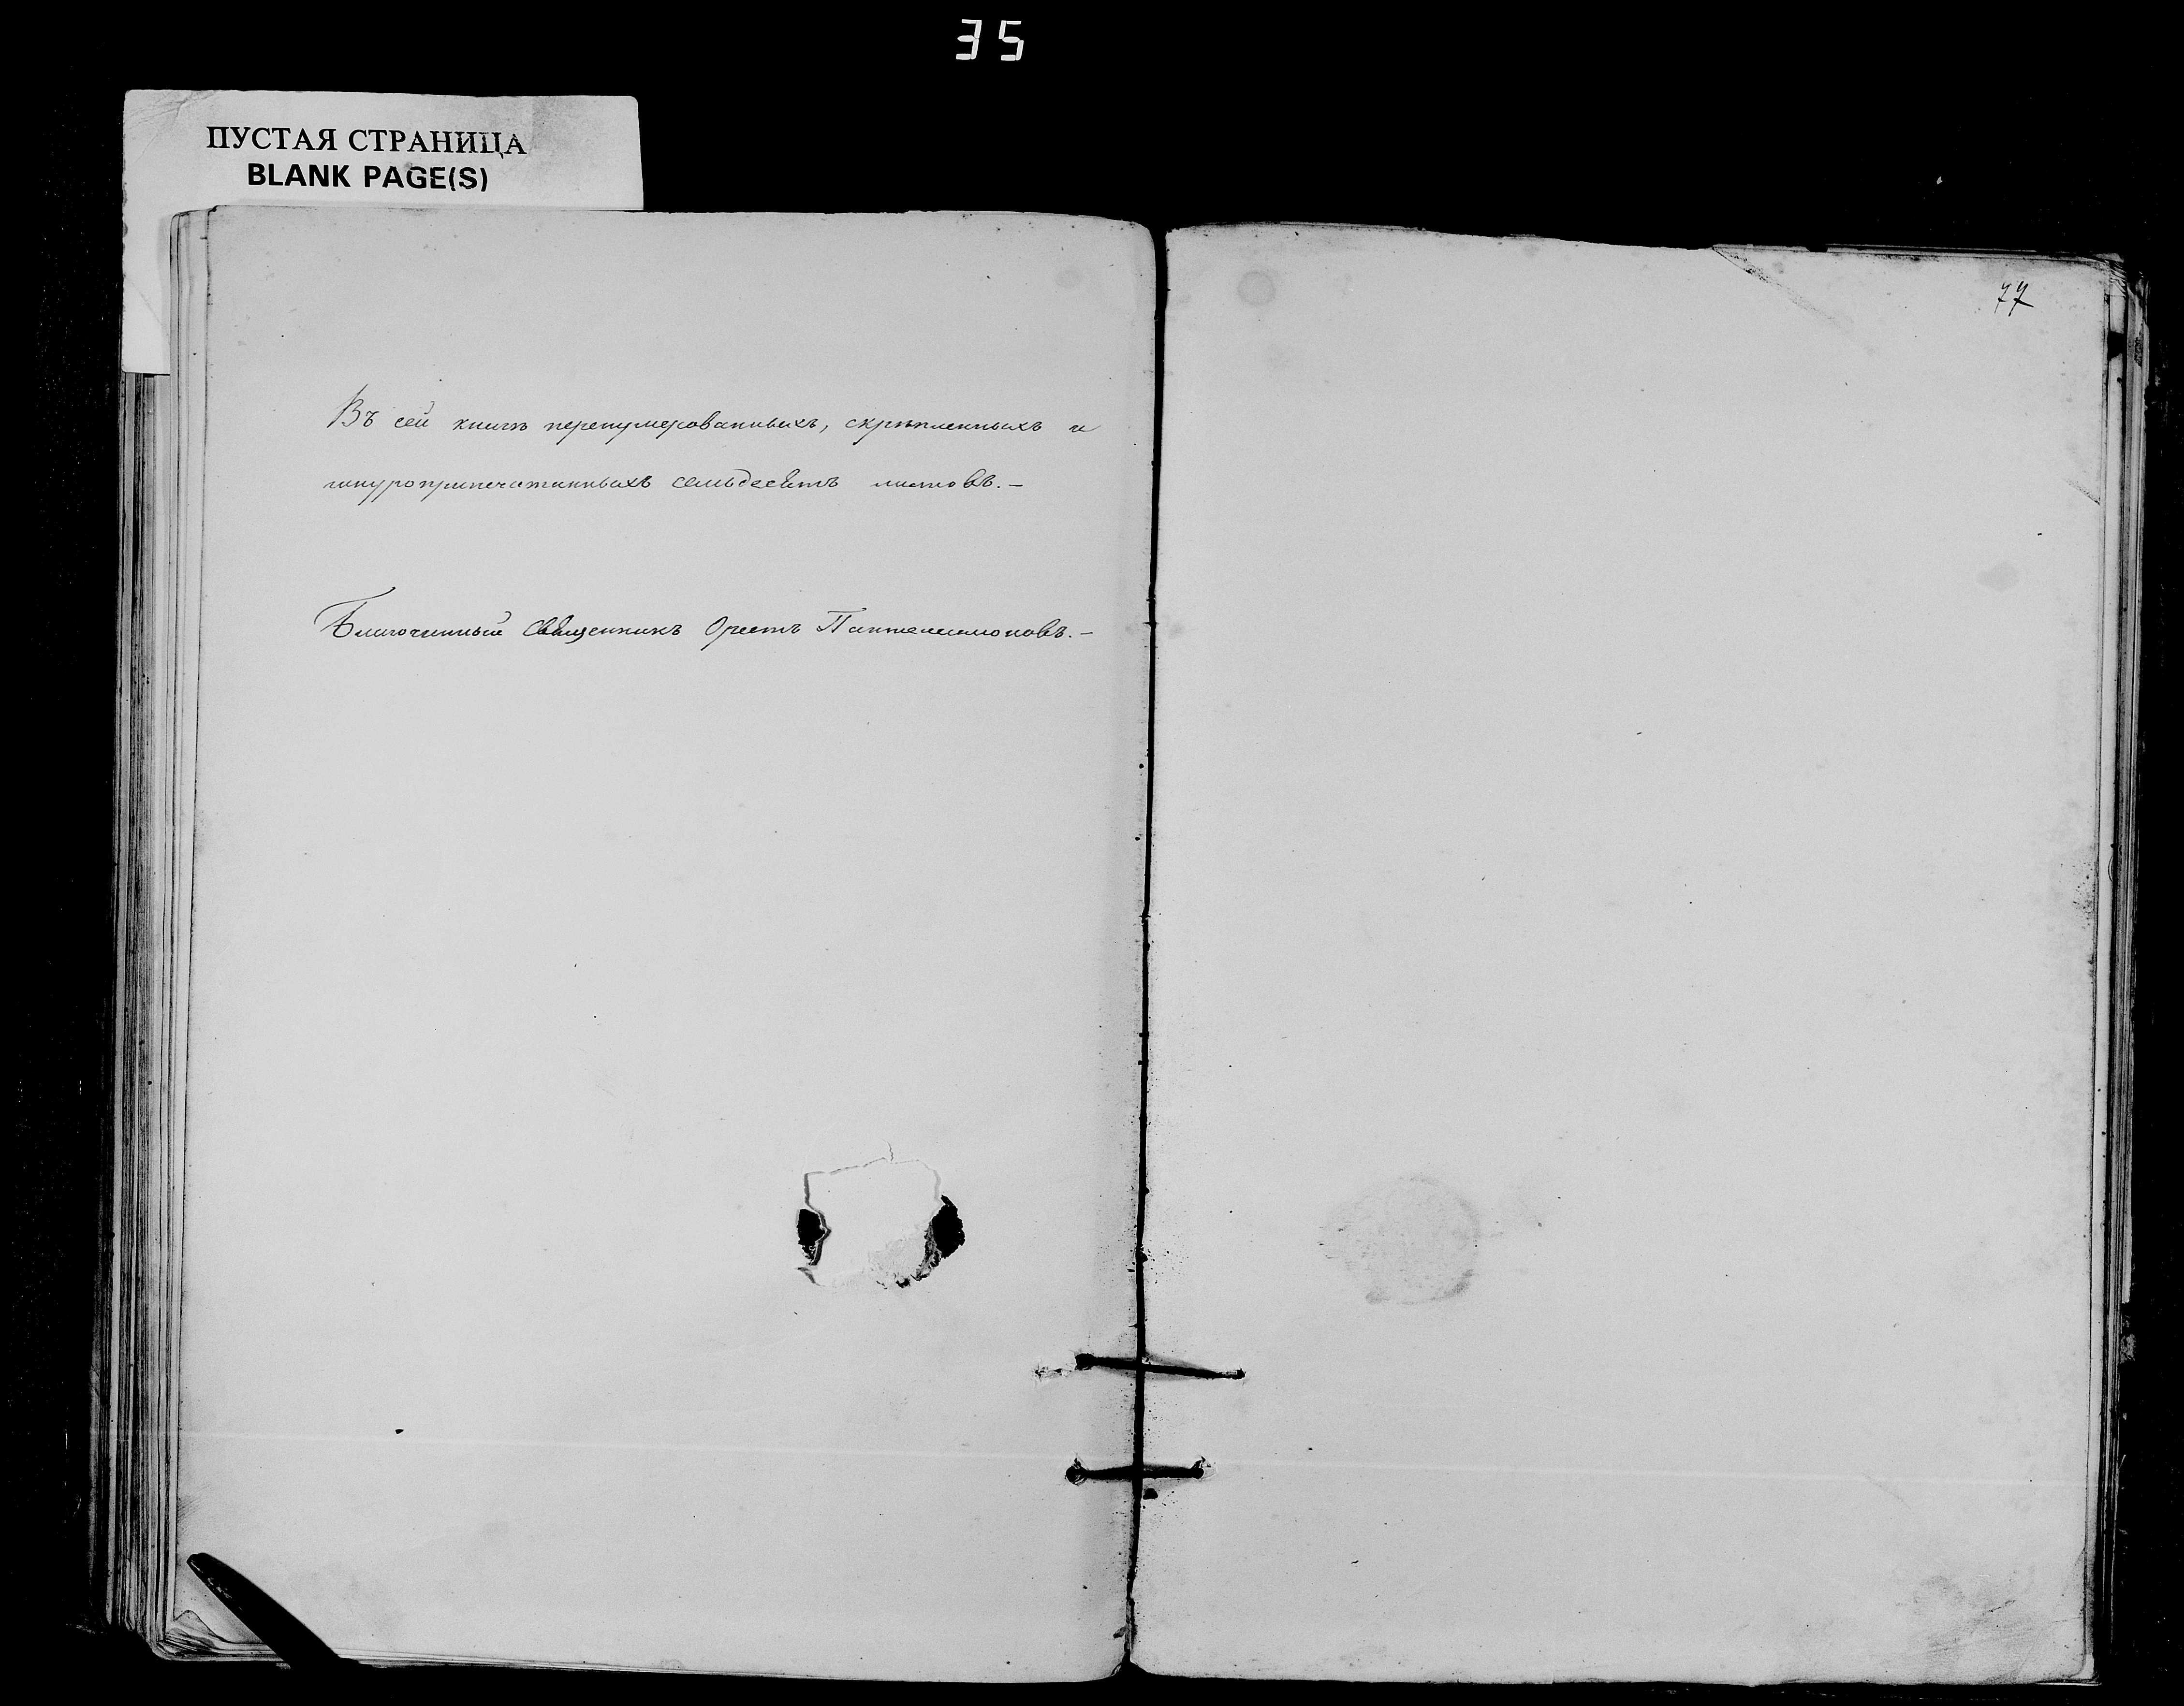 35
ПУСТАЯ СТРАНИЦА
BLANK PAGE(S)
77
Въ сей книгѣ перенумерованныхъ, скрѣпленныхъ и
шнуроприпечатанныхъ семьдесятъ листовъ. —
Благочинный Священникъ Орестъ Пантелеимоновъ. —